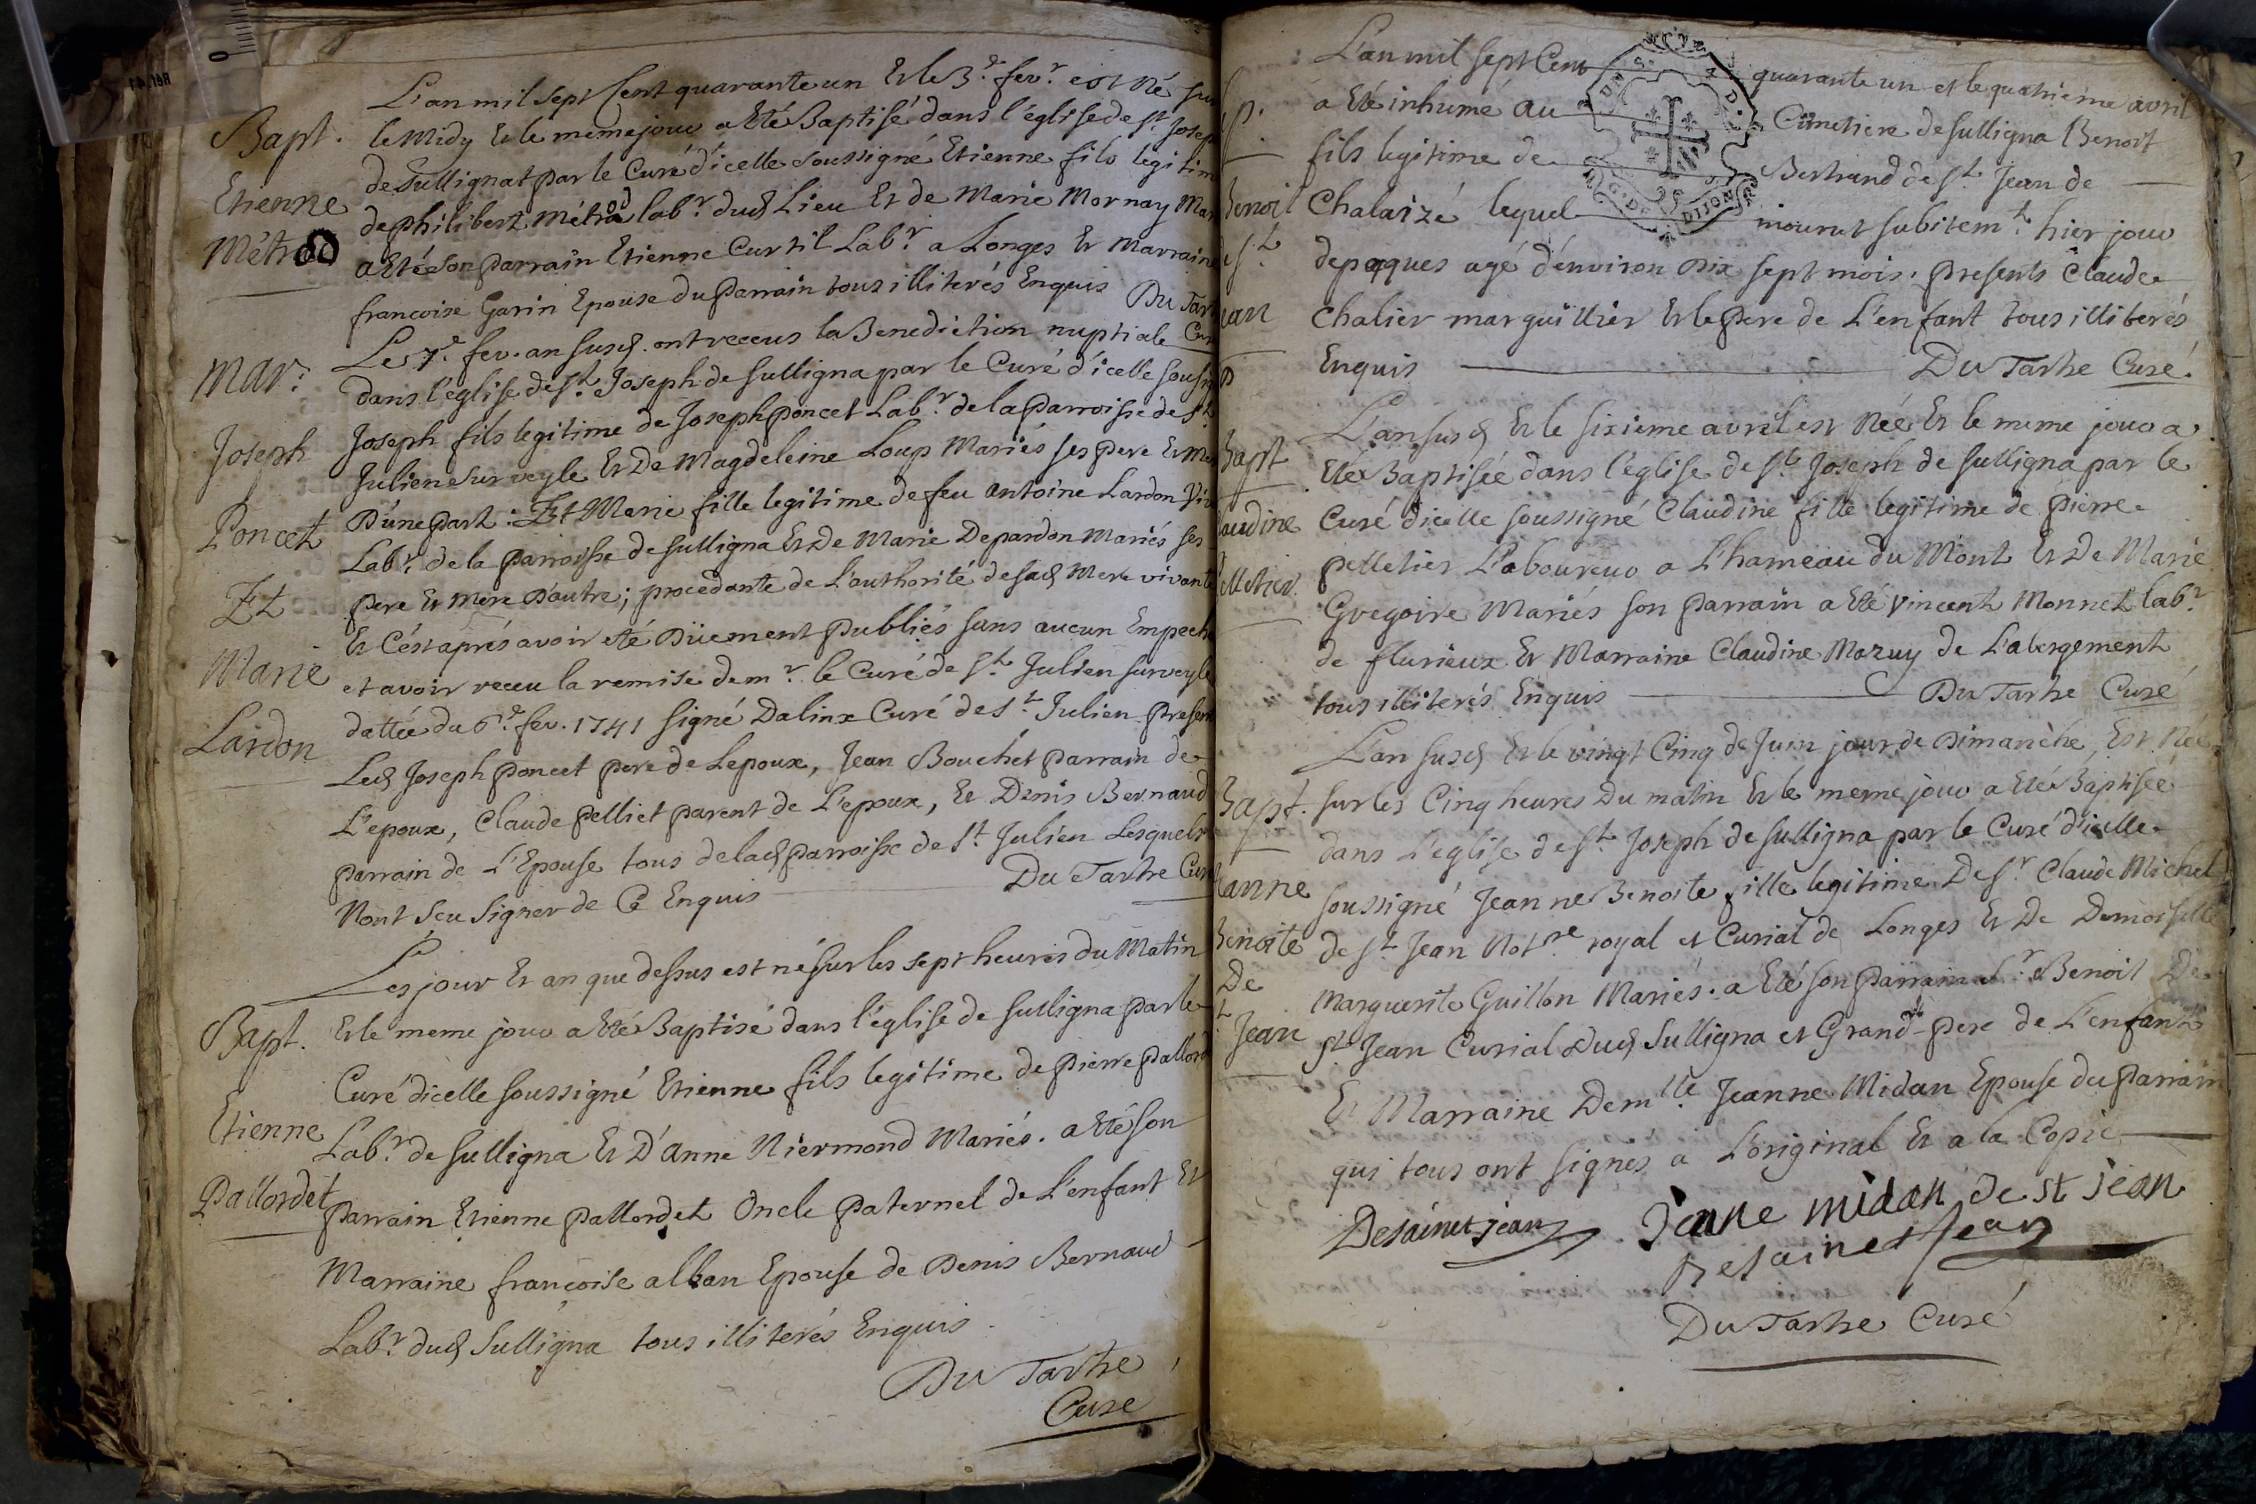 Bapt.
Etienne
Métrod
L'an mil sept Cent quarante un Et le 3.e fev.r est Né sur
le Midy Et le meme jour a Eté Baptisé dans l'église de st. Joseph
de Sullignat par le Curé d'icelle soussigné Etienne fils legitim
de philibert Métrod lab.r dud Lieu Et de Marie Mornay Mar
a Eté son parrain Etienne Curtil Lab.r a Longes Et Marraine
francoise Garin Epouse du parrain tous illiterés Enquis Du Tart
Cur
Mar:
Joseph
Poncet
Et
Marie
Lardon
Le 7.e fev. an susd. ont receus la Benediction nuptiale
dans l'église de st. Joseph de sulligna par le Curé d'icelle sousig
Joseph fils legitime de Joseph poncet Lab.r de la parroisse de st
Julien sur veyle Et De Magdeleine Loup Mariés ses pere Et mer
D'une part: Et Marie fille legitime de feu antoine Lardon Viv
Lab.r de la parroisse de sulligna Et De Marie Depardon Mariés ses
pere Et mere D'autre; procedante de L'authorité de sad Mere vivante
Et C'est aprés avoir eté Düement publiés sans aucun Empech
et avoir receu la remise de m.r le Curé de st. Julien sur veyle
dattée du 6.e fev. 1741 signé Dalinx Curé de st. Julien. presen
Led Joseph poncet pere de Lepoux, Jean Bouchet parrain de
L'epoux, Claude pelliet parent de L'epoux, Et Denis Bernaud
parrain de L'Epouse tous de lad parroisse de st Julien Lesquels
Nont sçu signer de Ce Enquis Du Tartre Cur
Bapt.
Etienne
Pallordet
Les jour Et an que dessus est né sur les sept heures du Matin
Et le meme jour a Eté Baptisé dans l'église de sulligna par le
Curé dicelle soussigné Etienne fils legitime de pierre pallord
Lab.r de sulligna Et D'anne Niermond Mariés. a Eté son
parrain Etienne pallordet Oncle paternel de L'enfant Et
Marraine françoise alban Epouse de Denis Bernaud
Lab.r dud Sulligna tous illiterés Enquis.
Du Tartre
Cure
p.
Benoit
de st
Jean
L'an mil sept Cent quarante un et le quatriéme avril
a Eté inhumé au Cimetiere de sulligna Benoit
fils legitime de Bertrand de st. Jean de
Chalaizé lequel mourut subitem.t hier jour
de paques agé d'environ Dix sept mois. presents Claude
chalier marguillier Et le pere de L'enfant tous illiterés
Enquis Du Tartre Curé.
G. DE DIJON
Bapt
audine
elletier
L'an susd Et le sixieme avril est Née Et le meme jour a
Eté Baptisée dans l'église de st. Joseph de sulligna par le
Curé dicelle soussigné Claudine fille legitime de pierre
pelletier Laboureur a L'hameau du Mont Et De Marie
Gregoire Mariés son parrain a Eté vincent Monnet lab.r
de flurieux Et Marraine Claudine Mozuy de L'abergement
tous illiterés Enquis Du Tartre Curé
Bapt.
anne
Benoite
De
st
Jean
L'an susd Et le vingt Cinq de Juin jour de Dimanche, Est Née
sur les Cinq heures Du matin Et le meme jour a Eté Baptisée
dans L'eglise de st. Joseph de sulligna par le Curé d'icelle
soussigné Jeanne Benoite fille legitime De s.r Claude Michel
de st Jean Not.re royal et Curial de Longes Et De Demoiselle
Marguerite Guillon Mariés. a Eté son parrain s.r Benoit De
st Jean Curial dud Sulligna et Grand-pere de L'enfant
Et Marraine Dem.lle Jeanne Midan Epouse du parrain
qui tous ont signés a L'original Et a la Copie
Desainct jean Jeanne midan de st jean
Desainct Jean
Du Tartre Curé